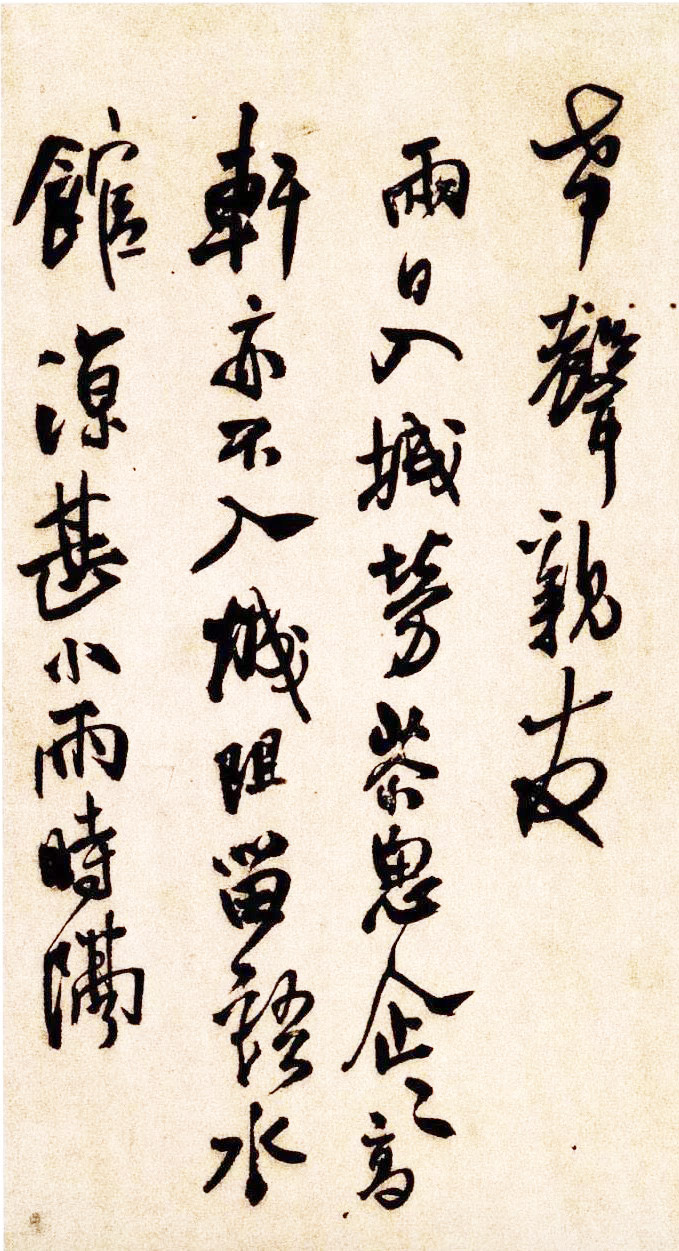 希聲親友
雨日入城勞紫思企〻高
軒亦不入城阻留語水
館涼甚小雨時